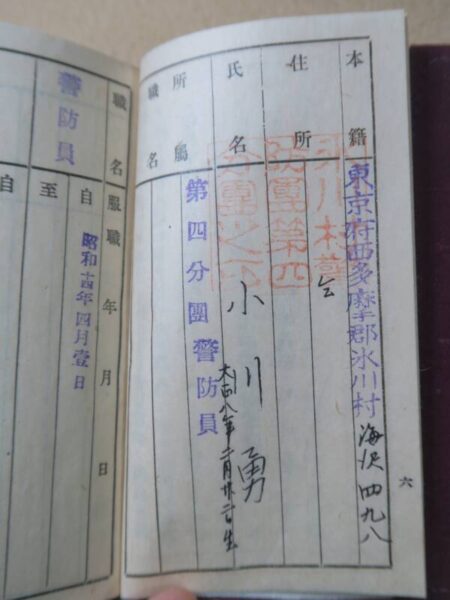 本籍 東京府西多摩郡氷川村 海沢四九八
住所 仝
氷川村警
防團第四
分團之印
氏名 小川勇
大正八年二月廿二日生
所屬
職名
第四分團警防員
六
職名 服職年月日
警防員 自 昭和十四年四月壹日
至
自